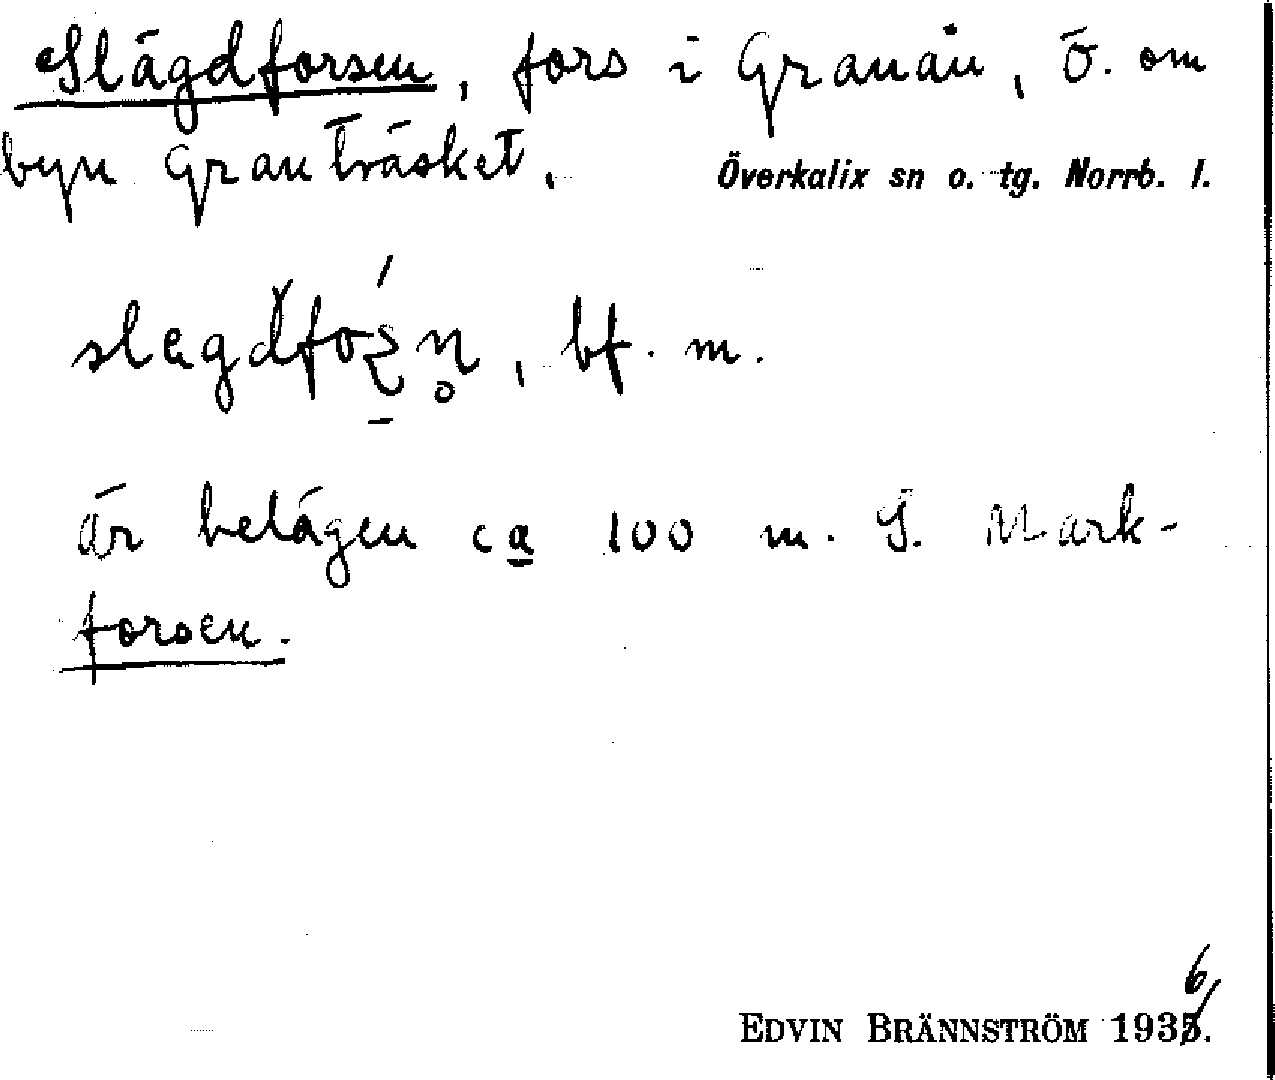 Slägdforsen, fors i Granån, ö. om
byn Granträsket.
Överkalix sn o. tg. Norrb. l.
är belägen ca 100 m. S. Mark-
forsen.
6
EDVIN BRÄNNSTRÖM 1935.